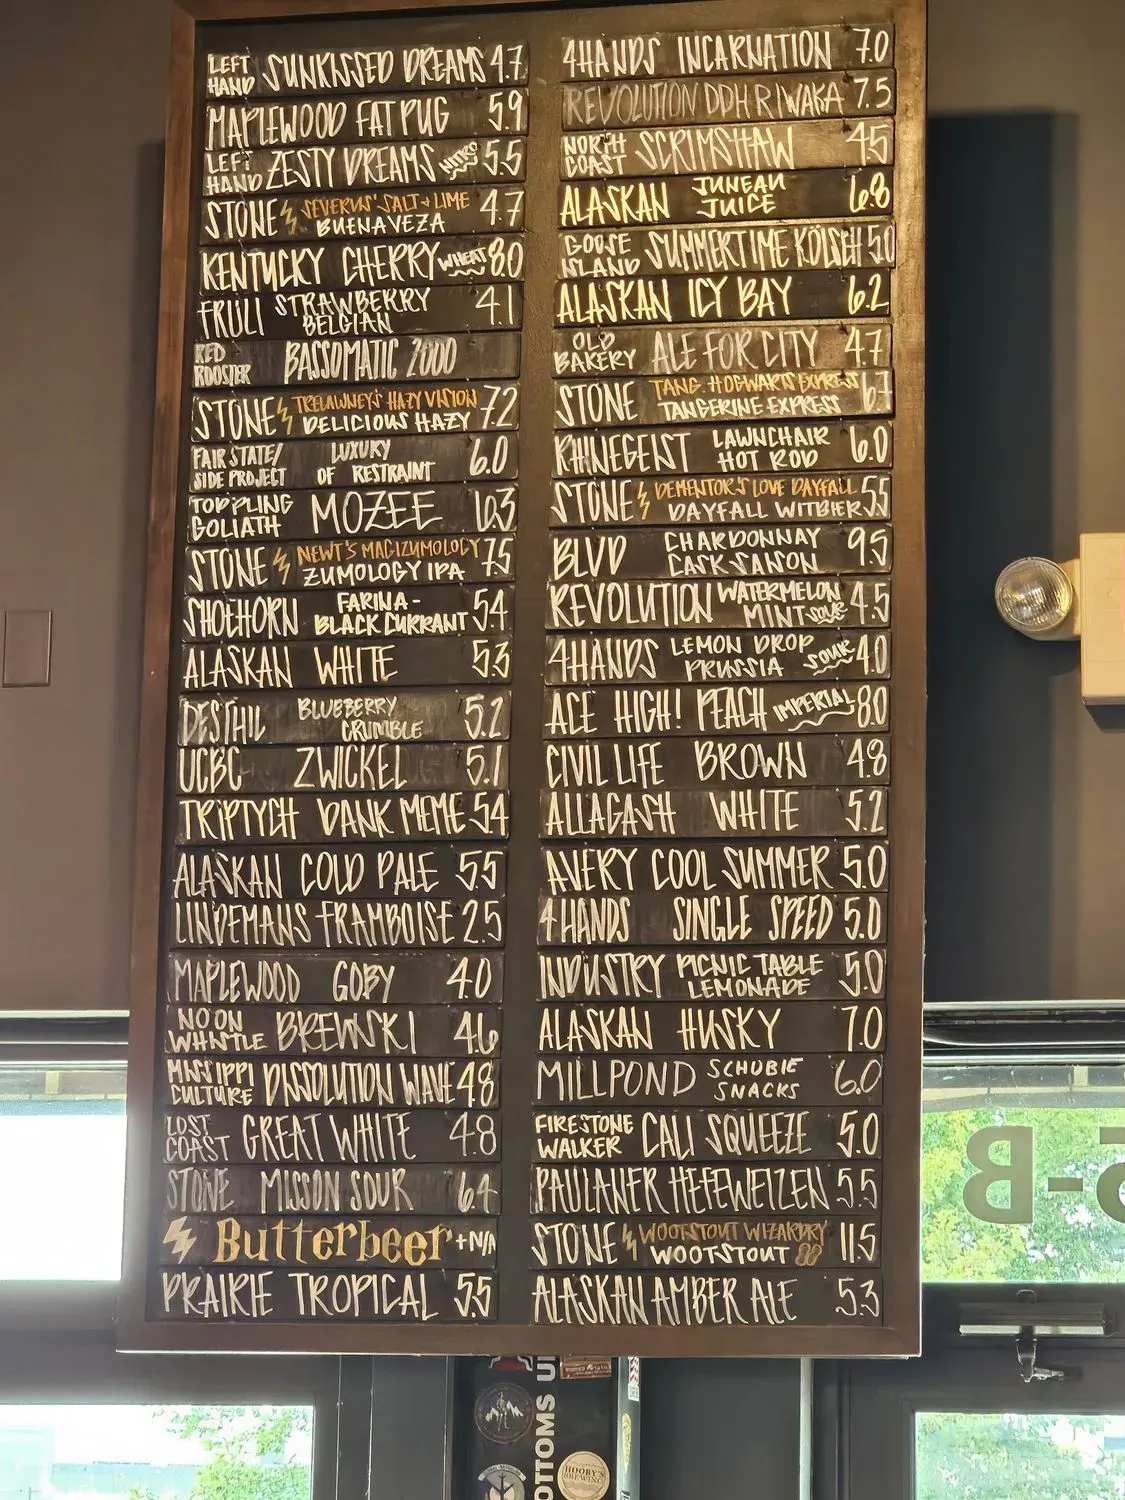 LEFT HAND SUNKISSED DREAMS 4.7
MAPLEWOOD FAT PUG 5.9
LEFT HAND ZESTY DREAMS NITRO 5.5
STONE SEVERUS' SALT & LIME BUENAVEZA 4.7
KENTUCKY CHERRY WHEAT 8.0
FRULI STRAWBERRY BELGIAN 4.1
RED ROOSTER BASSOMATIC 2000
STONE TRELAWNEY'S HAZY VISION DELICIOUS HAZY 7.2
FAIR STATE/ SIDE PROJECT LUXURY OF RESTRAINT 6.0
TOPPLING GOLIATH MOZEE 6.3
STONE NEWT'S MAGIZUMOLOGY ZUMOLOGY IPA 7.5
SHOEHORN FARINA- BLACK CURRANT 5.4
ALASKAN WHITE 5.3
DESTIHL BLUEBERRY CRUMBLE 5.2
UCBC ZWICKEL 5.1
TRIPTYCH DANK MEME 5.4
ALASKAN COLD PALE 5.5
LINDEMANS FRAMBOISE 2.5
MAPLEWOOD GOBY 4.0
NOON WHISTLE BREWSKI 4.6
MISSIPPI CULTURE DISSOLUTION WAVE 4.8
LOST COAST GREAT WHITE 4.8
STONE MISSON SOUR 6.4
Butterbeer + N/A
PRAIRIE TROPICAL 5.5
4HANDS INCARNATION 7.0
REVOLUTION DDH RIWAKA 7.5
NORTH COAST SCRIMSHAW 4.5
ALASKAN JUNEAU JUICE 6.8
GOOSE ISLAND SUMMERTIME KÖLSCH 5.0
ALASKAN ICY BAY 6.2
OLD BAKERY ALE FOR CITY 4.7
STONE TANG HOGWARTS EXPRESS TANGERINE EXPRESS 6.7
RHINEGEIST LAWNCHAIR HOT ROD 6.0
STONE DEMENTOR'S LOVE DAYFALL DAYFALL WITBIER 5.5
BLVD CHARDONNAY CASK SAISON 9.5
REVOLUTION WATERMELON MINT SOUR 4.5
4HANDS LEMON DROP PRUSSIA SOUR 4.0
ACE HIGH! PEACH IMPERIAL 8.0
CIVIL LIFE BROWN 4.8
ALLAGASH WHITE 5.2
AVERY COOL SUMMER 5.0
4HANDS SINGLE SPEED 5.0
INDUSTRY PICNIC TABLE LEMONADE 5.0
ALASKAN HUSKY 7.0
MILLPOND SCHUBIE SNACKS 6.0
FIRESTONE WALKER CALI SQUEEZE 5.0
PAULANER HEFEWEIZEN 5.5
STONE WOOTSTOUT WIZARDRY WOOTSTOUT 11.5
ALASKAN AMBER ALE 5.3
OTTOMS U
HOOBY'S BREWING